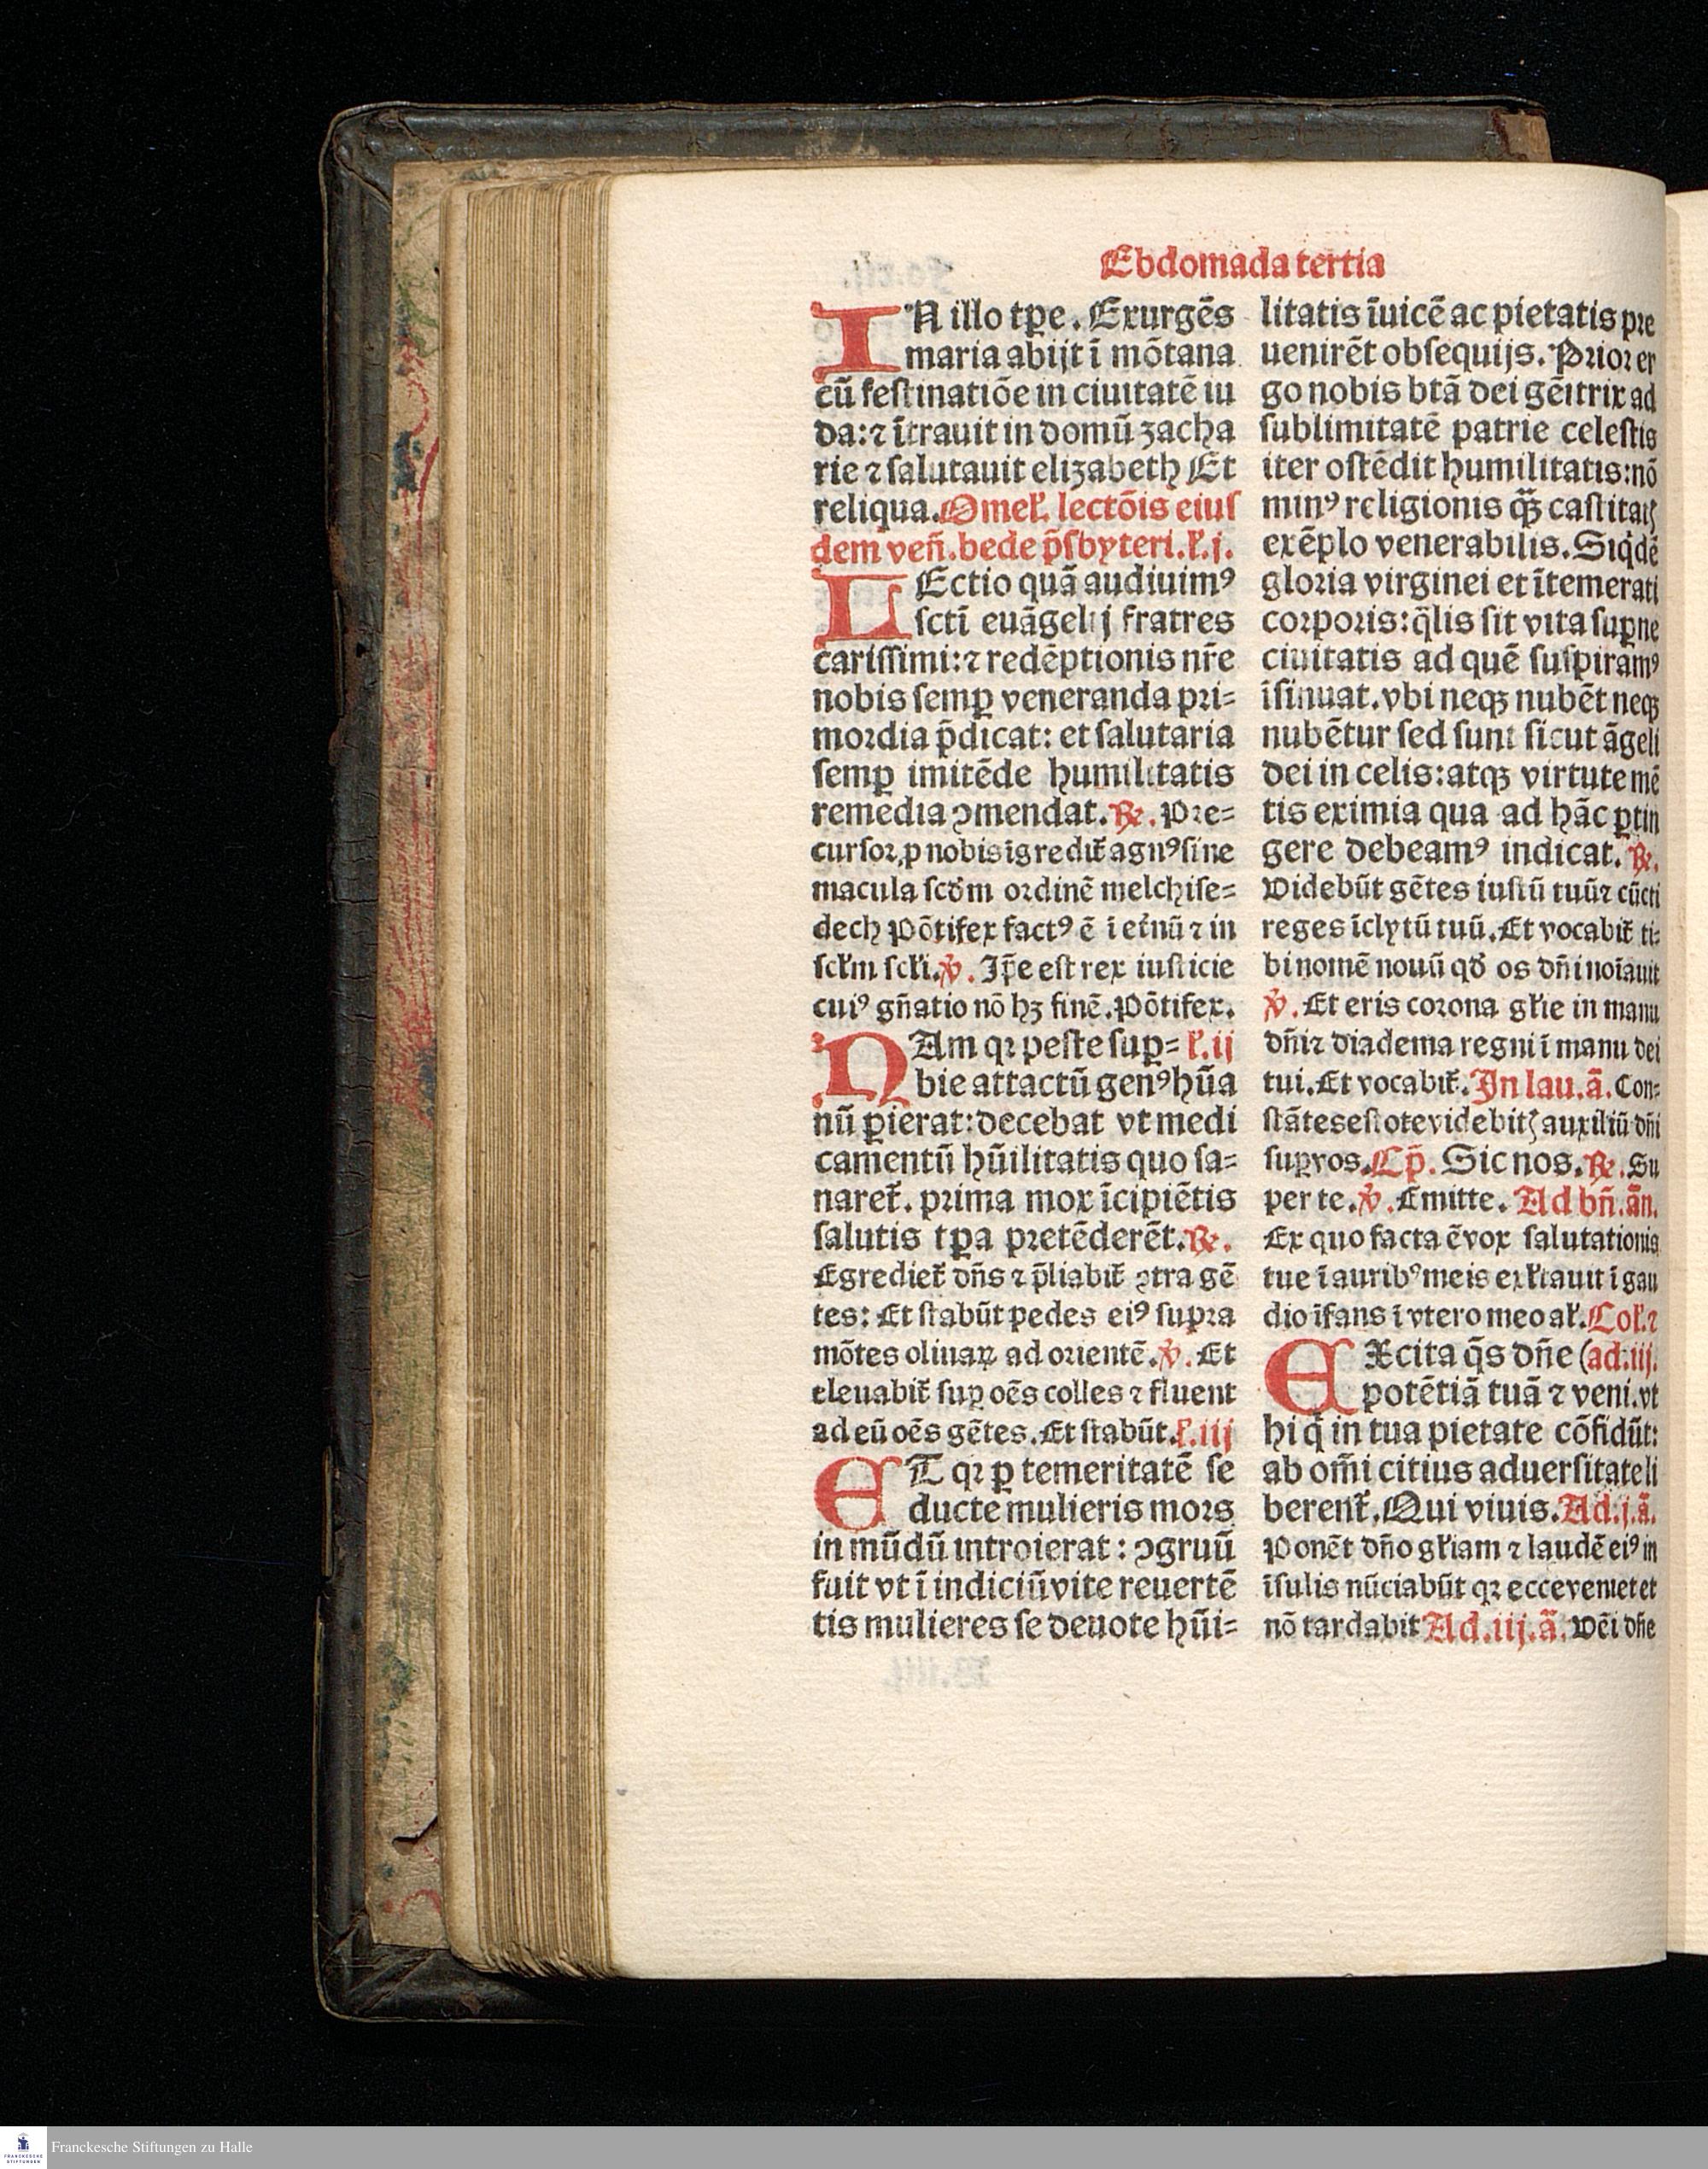 Ebdomada tertia
IN illo tꝑe. Exurgēs
maria abijt ī mōtana
cū festinatiōe in ciuitatē iu
da:⁊ ītrauit in domū zacha
rie ⁊ salutauit elizabeth Et
reliqua. Omeꝉ. lectōis eius
dem veñ. bede p̄sbyteri. ꝉ. j.
LEctio quā audiuimꝰ
sctī euāgelij fratres
carissimi:⁊ redēptionis nr̄e
nobis semꝑ veneranda pri-
mordia p̄dicat: et salutaria
semꝑ imitēde humilitatis
remedia ↄmendat. ℟. Pre-
cursor ꝓ nobis īgredit᷑ agnꝰ sine
macula scđm ordinē melchise-
dech Pōtifex factꝰ ē ī et̄nū ⁊ in
scꝉm scꝉi. ℣. Ip̄e est rex iusticie
cuiꝰ gn̄atio nō hꝫ finē. Pōtifex.
NAm qꝛ peste suꝑ- ꝉ. ij
bie attactū genꝰ hūa
nū ꝑierat: decebat vt medi
camentū hūilitatis quo sa-
naret᷑. prima mox īcipiētis
salutis tꝑa pretēderēt. ℟.
Egrediet᷑ dn̄s ⁊ p̄liabit᷑ ↄtra gē
tes: Et stabūt pedes eiꝰ supra
mōtes oliuaꝝ ad orientē. ℣. Et
eleuabit᷑ suꝑ oēs colles ⁊ fluent
ad eū oēs gētes. Et stabūt. ꝉ. iij
ET qꝛ ꝑ temeritatē se
ducte mulieris mors
in mūdū introierat: ↄgruū
fuit vt ī indiciū vite reuertē
tis mulieres se deuote hūi-
litatis īuicē ac pietatis pre
uenirēt obsequijs. Prior er
go nobis btā dei gēitrix ad
sublimitatē patrie celestis
iter ostēdit humilitatis: nō
minꝰ religionis qꝫ̄ castitatꝭ
exēplo venerabilis. Siqͥdē
gloria virginei et ītemerati
corporis: q̄lis sit vita suꝑne
ciuitatis ad quē suspiramꝰ
īsinuat. vbi neqꝫ nubēt neqꝫ
nubētur sed sunt sicut āgeli
dei in celis: atqꝫ virtute mē
tis eximia qua ad hāc ꝑtin
gere debeamꝰ indicat. ℟.
Videbūt gētes iustū tuū ⁊ cūcti
reges īclytū tuū. Et vocabit᷑ ti-
bi nomē nouū qđ os dn̄i noīauit
℣. Et eris corona gꝉie in manu
dn̄i ⁊ diadema regni ī manu dei
tui. Et vocabit᷑. In lau. ā. Con-
stātes estote videbitꝭ auxiliū dn̄i
suꝑ vos. Cp̄. Sic nos. ℟. Su
per te. ℣. Emitte. Ad bn̄. ān.
Ex quo facta ē vox salutationis
tue ī auribꝰ meis exꝉtauit ī gau
dio īfans ī vtero meo aꝉ. Coꝉ. ⁊
EXcita q̄s dn̄e (ad. iij.
potētiā tuā ⁊ veni. vt
hi qͥ in tua pietate cōfidūt:
ab om̄i citius aduersitate li
berent᷑. Qui viuis. Ad. j. ā.
Ponēt dn̄o gꝉiam ⁊ laudē eiꝰ in
īsulis nūciabūt qꝛ ecce veniet et
nō tardabit Ad. iij. ā. Vēi dn̄e
Franckesche Stiftungen zu Halle